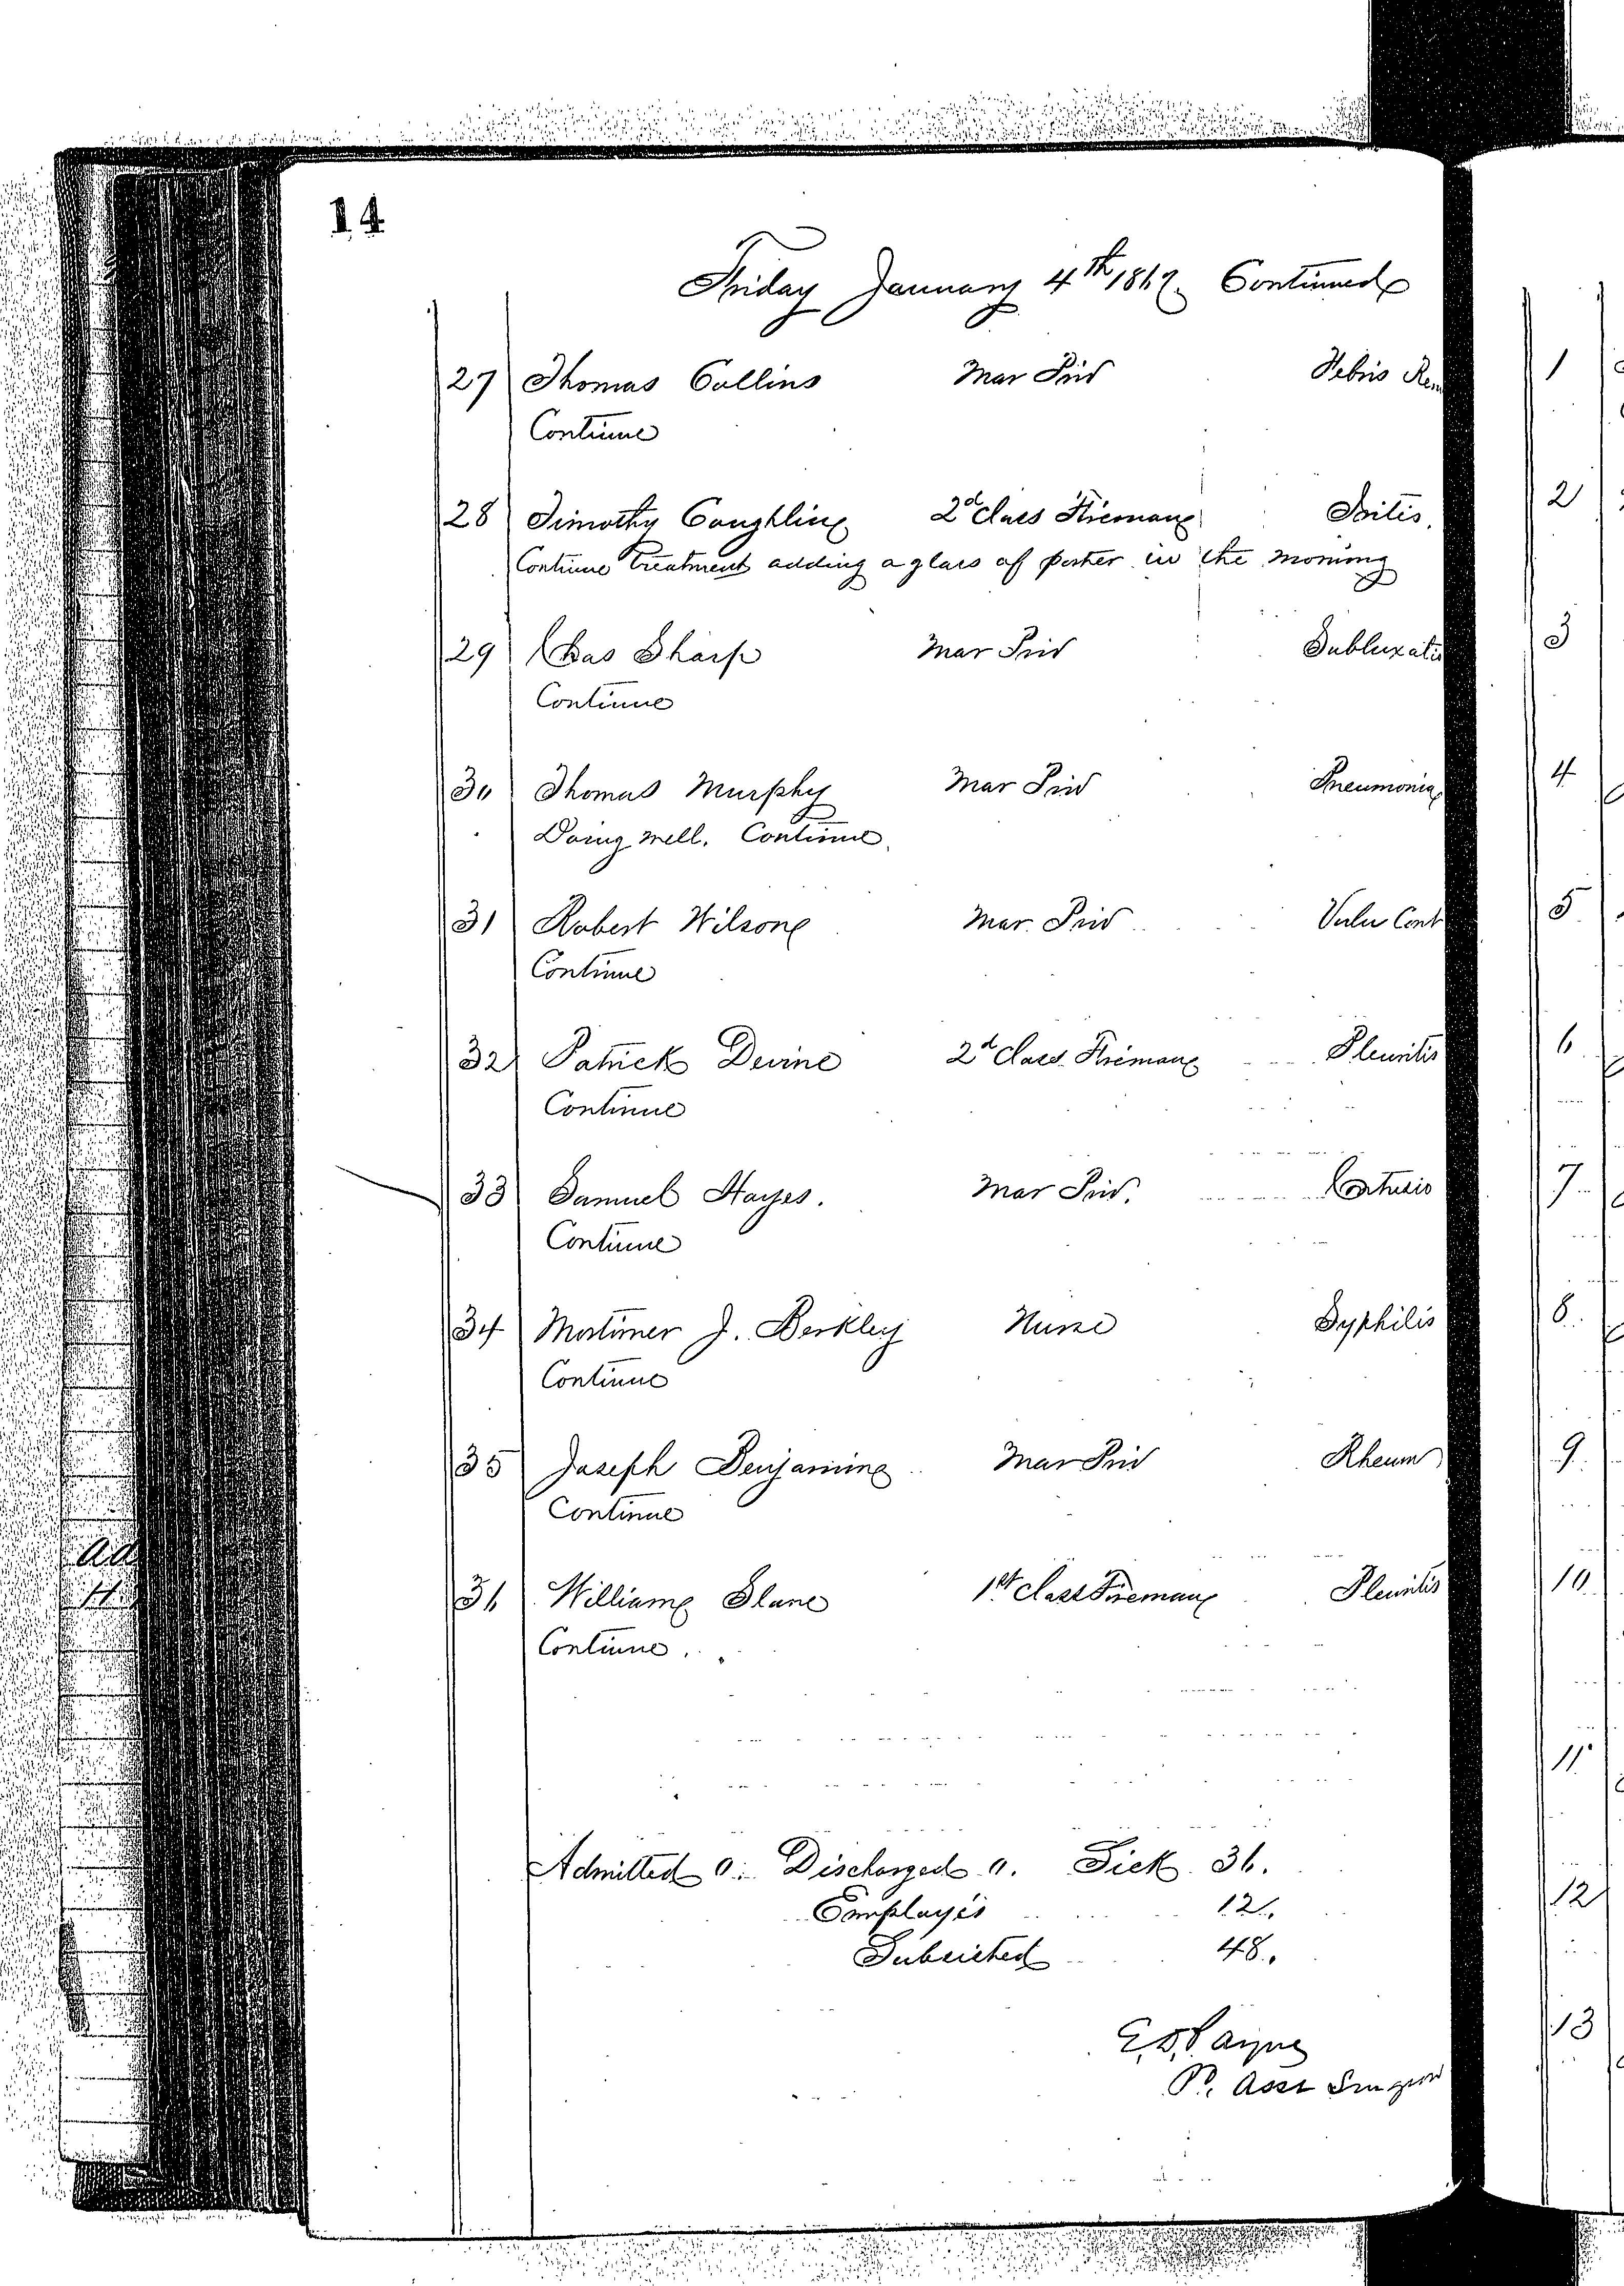 14
Friday January 4th 1867. Continued
27 Thomas Collins Mar Priv Febris Rem
Continue
28 Timothy Coughlin 2d Class Fireman Iritis.
Continue treatment adding a glass of porter in the morning
29 Chas Sharp Mar Priv Subluxatio
Continue
30 Thomas Murphy Mar Priv Pneumonia
Doing well. Continue
31 Robert Wilson Mar. Priv Vuln Cont
Continue
32 Patrick Devine 2d Class Fireman Pleuritis
Continue
33 Samuel Hayes. Mar Priv. Contusio
Continue
34 Mortimer J. Berkley Nurse Syphilis
Continue
35 Joseph Benjamin Mar Priv Rheum
Continue
36 William Slane 1st Class Fireman Pleuritis
Continue.
Admitted 0. Discharged 0. Sick 36.
Employés 12.
Subsisted 48.
P. Asst Surgeon
Ad
H
1
2
3
4
5
6
7
8
9
10
11
12
13